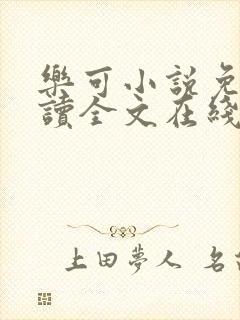 樂可小説免
讀全文在綫
上田夢人 名